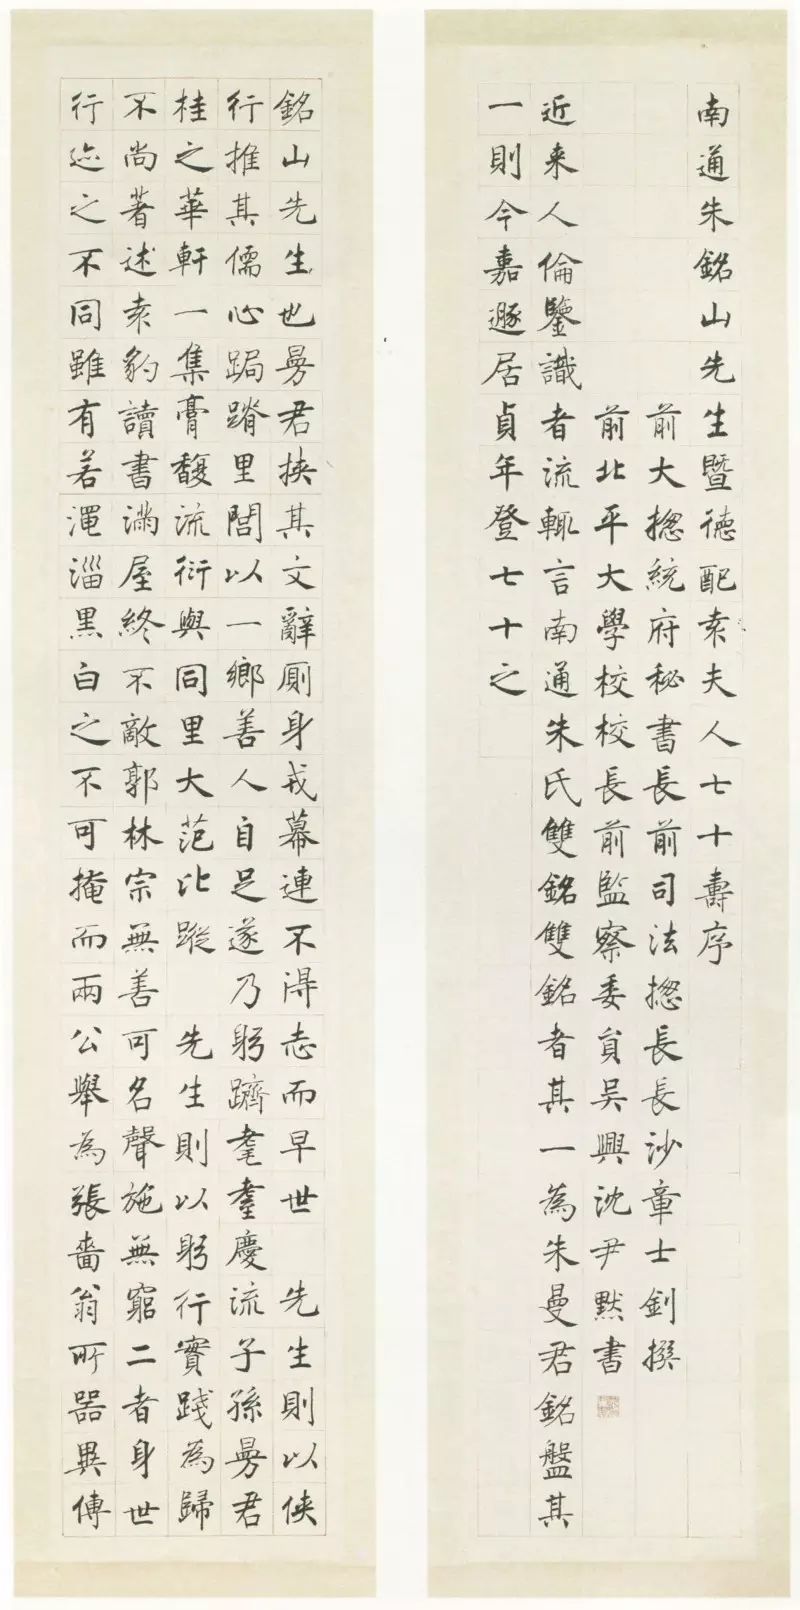 南通朱銘山先生暨德配袁夫人七十壽序
前大揔統府秘書長前司法揔長長沙章士釗撰
前北平大學校校長前監察委員吳興沈尹默書
近来人倫鑒識者流輒言南通朱氏雙銘雙銘者其一為朱曼君銘盤其
一則今嘉遯居貞年登七十之
銘山先生也曼君挾其文辭厠身戎幕連不淂志而早世 先生則以俠
行推其儒心跼蹐里閭以一鄉善人自足遂乃躬躋耄耋慶流子孫曼君
桂之華軒一集膏馥流衍與同里大范比蹤 先生則以躬行實踐為歸
不尚著述袁豹讀書滿屋終不敵郭林宗無善可名聲施無窮二者身世
行迹之不同雖有若澠淄黑白之不可掩而兩公舉為張嗇翁所器異傳